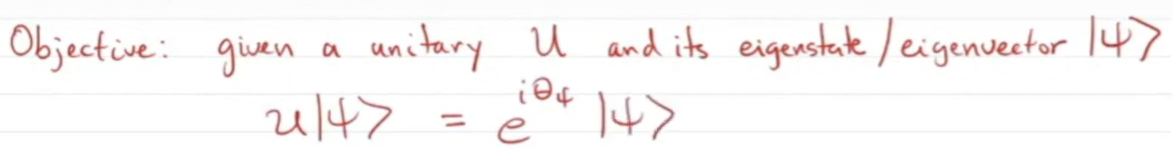 Objective: given a unitary U and its eigenstate/eigenvector |ψ>
U|ψ> = e^{iθ_ψ} |ψ>